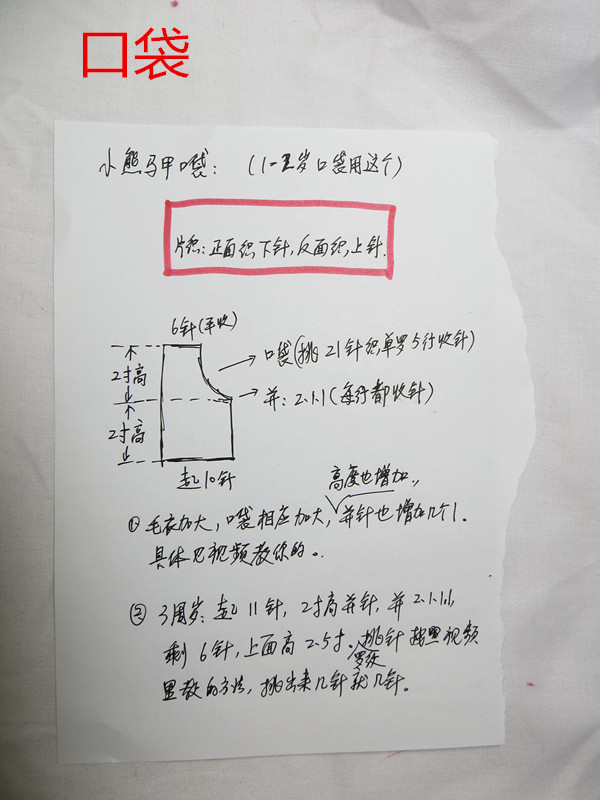 口袋
小熊马甲口袋：(1-2岁口袋用这个)
片织：正面织下针，反面织上针.
6针(平收)
口袋(挑21针织单罗5行收针)
2寸高
并：2.1.1(每行都收针)
2寸高
起10针
高度也增加.
①毛衣加大，口袋相应加大，并针也增加几个1.
具体见视频教你的。
②3周岁：起11针，2寸高并针，并2.1.1.1,
剩6针，上面高2.5寸、挑针按照视频
罗纹
里教的方法，挑出来几针就几针。